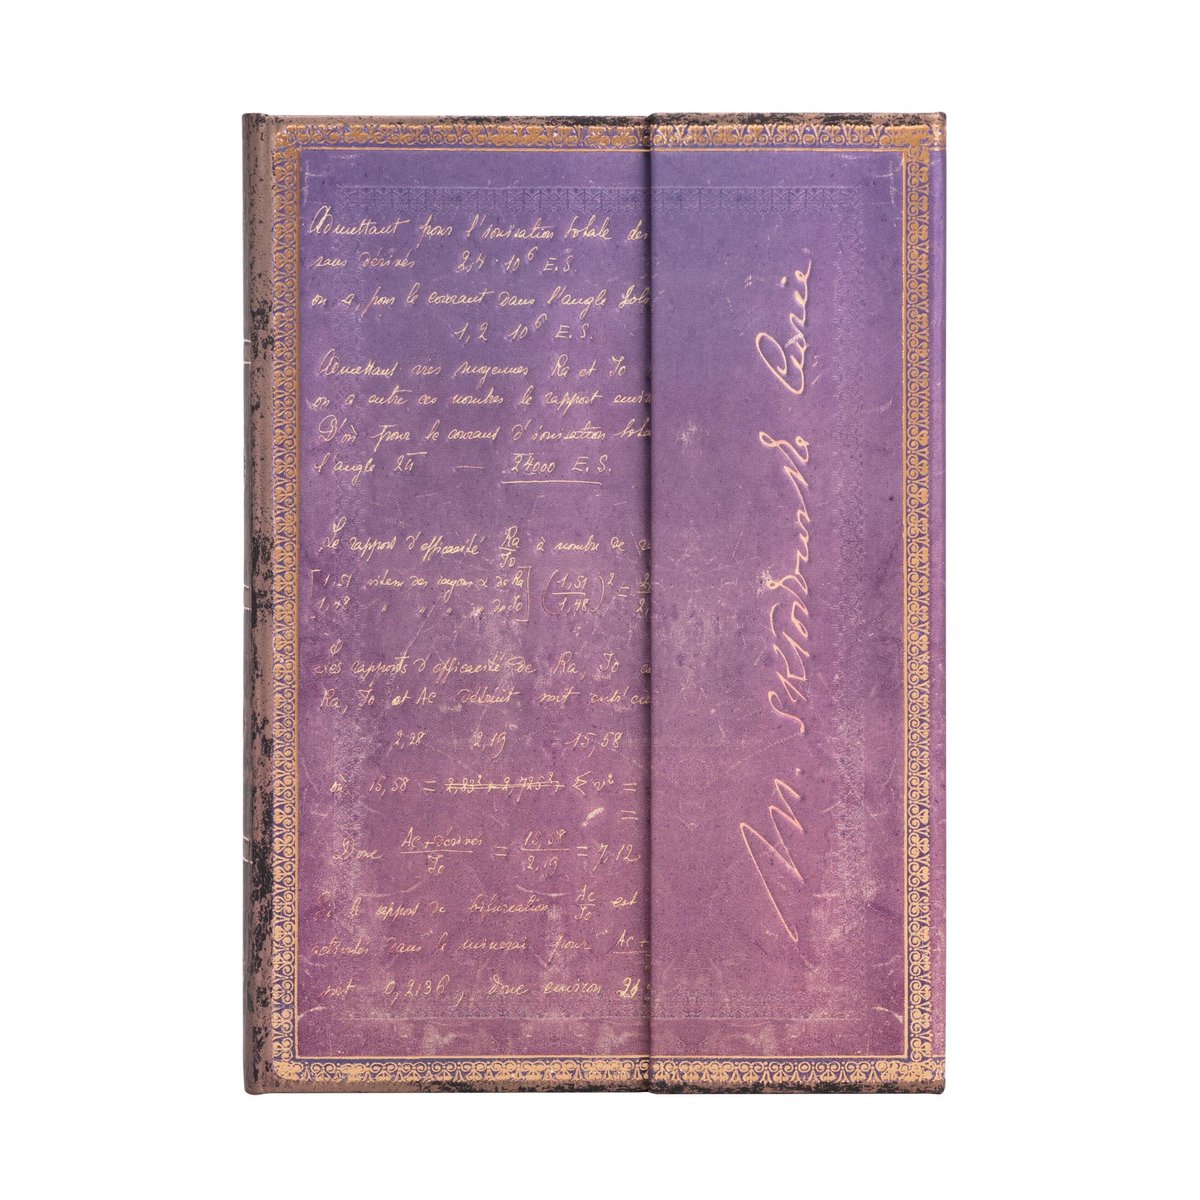 Admettant pour l'ionisation totale des
sans dérivés 2,4 · 10⁶ E.S.
on a, pour le courant dans l'angle
1,2 10⁶ E.S.
Admettant très moyennes Ra et Io
on a entre ces nombres le rapport
D'où pour le courant d'ionisation
l'angle 2π — 24000 E.S.
Le rapport d'efficacité Ra/Io a nombre de
[1,51 vitesse des rayons α de Ra
1,48 " " " " de Io] (1,51/1,48)² =
Les rapports d'efficacité de Ra, Io
Ra, Io et Ac
2,28 2,19 15,58
où 15,58 = 2,83² + 2,725² + Σ v² =
=
Donc Ac + dérivés/Io = 15,58/2,19 = 7,12
Si le rapport de bifurcation Ac/Io est
activités dans le minerai pour Ac +
soit 0,2136, donc environ
M. Skłodowska Curie